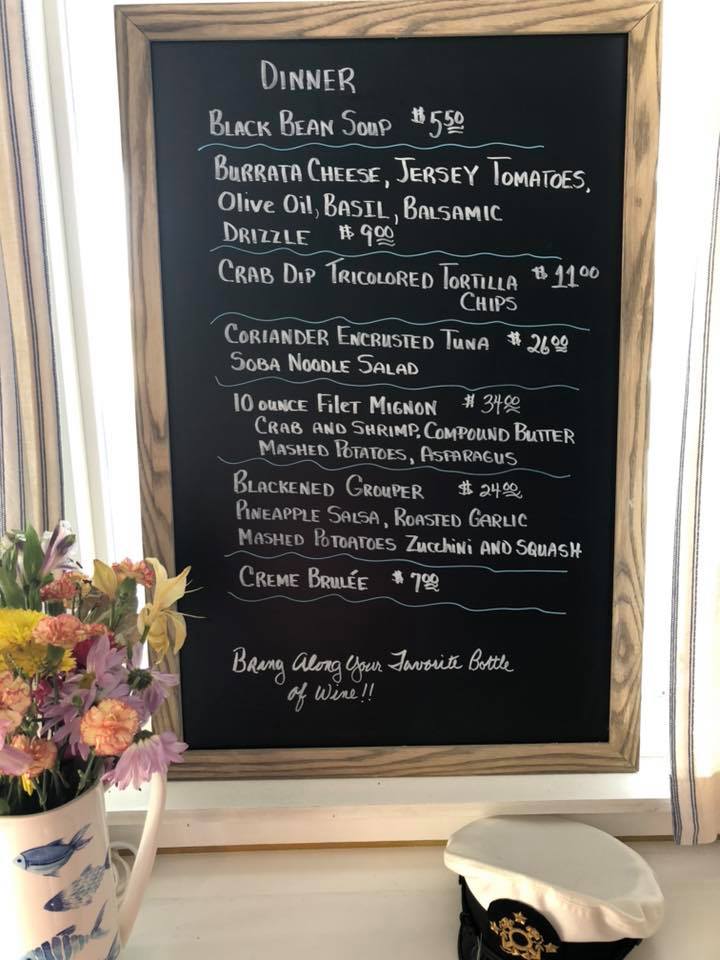 DINNER
BLACK BEAN SOUP $5.50
BURRATA CHEESE, JERSEY TOMATOES,
Olive Oil, BASIL, BALSAMIC
DRIZZLE $9.00
CRAB DIP TRICOLORED TORTILLA $11.00
CHIPS
CORIANDER ENCRUSTED TUNA $26.00
SOBA NOODLE SALAD
10 OUNCE FILET MIGNON $34.00
CRAB AND SHRIMP, COMPOUND BUTTER
MASHED POTATOES, ASPARAGUS
BLACKENED GROUPER $24.00
PINEAPPLE SALSA, ROASTED GARLIC
MASHED POTOATOES Zucchini AND SQUASH
CREME BRULÉE $7.00
Brang Along Your Favorite Bottle
of Wine!!